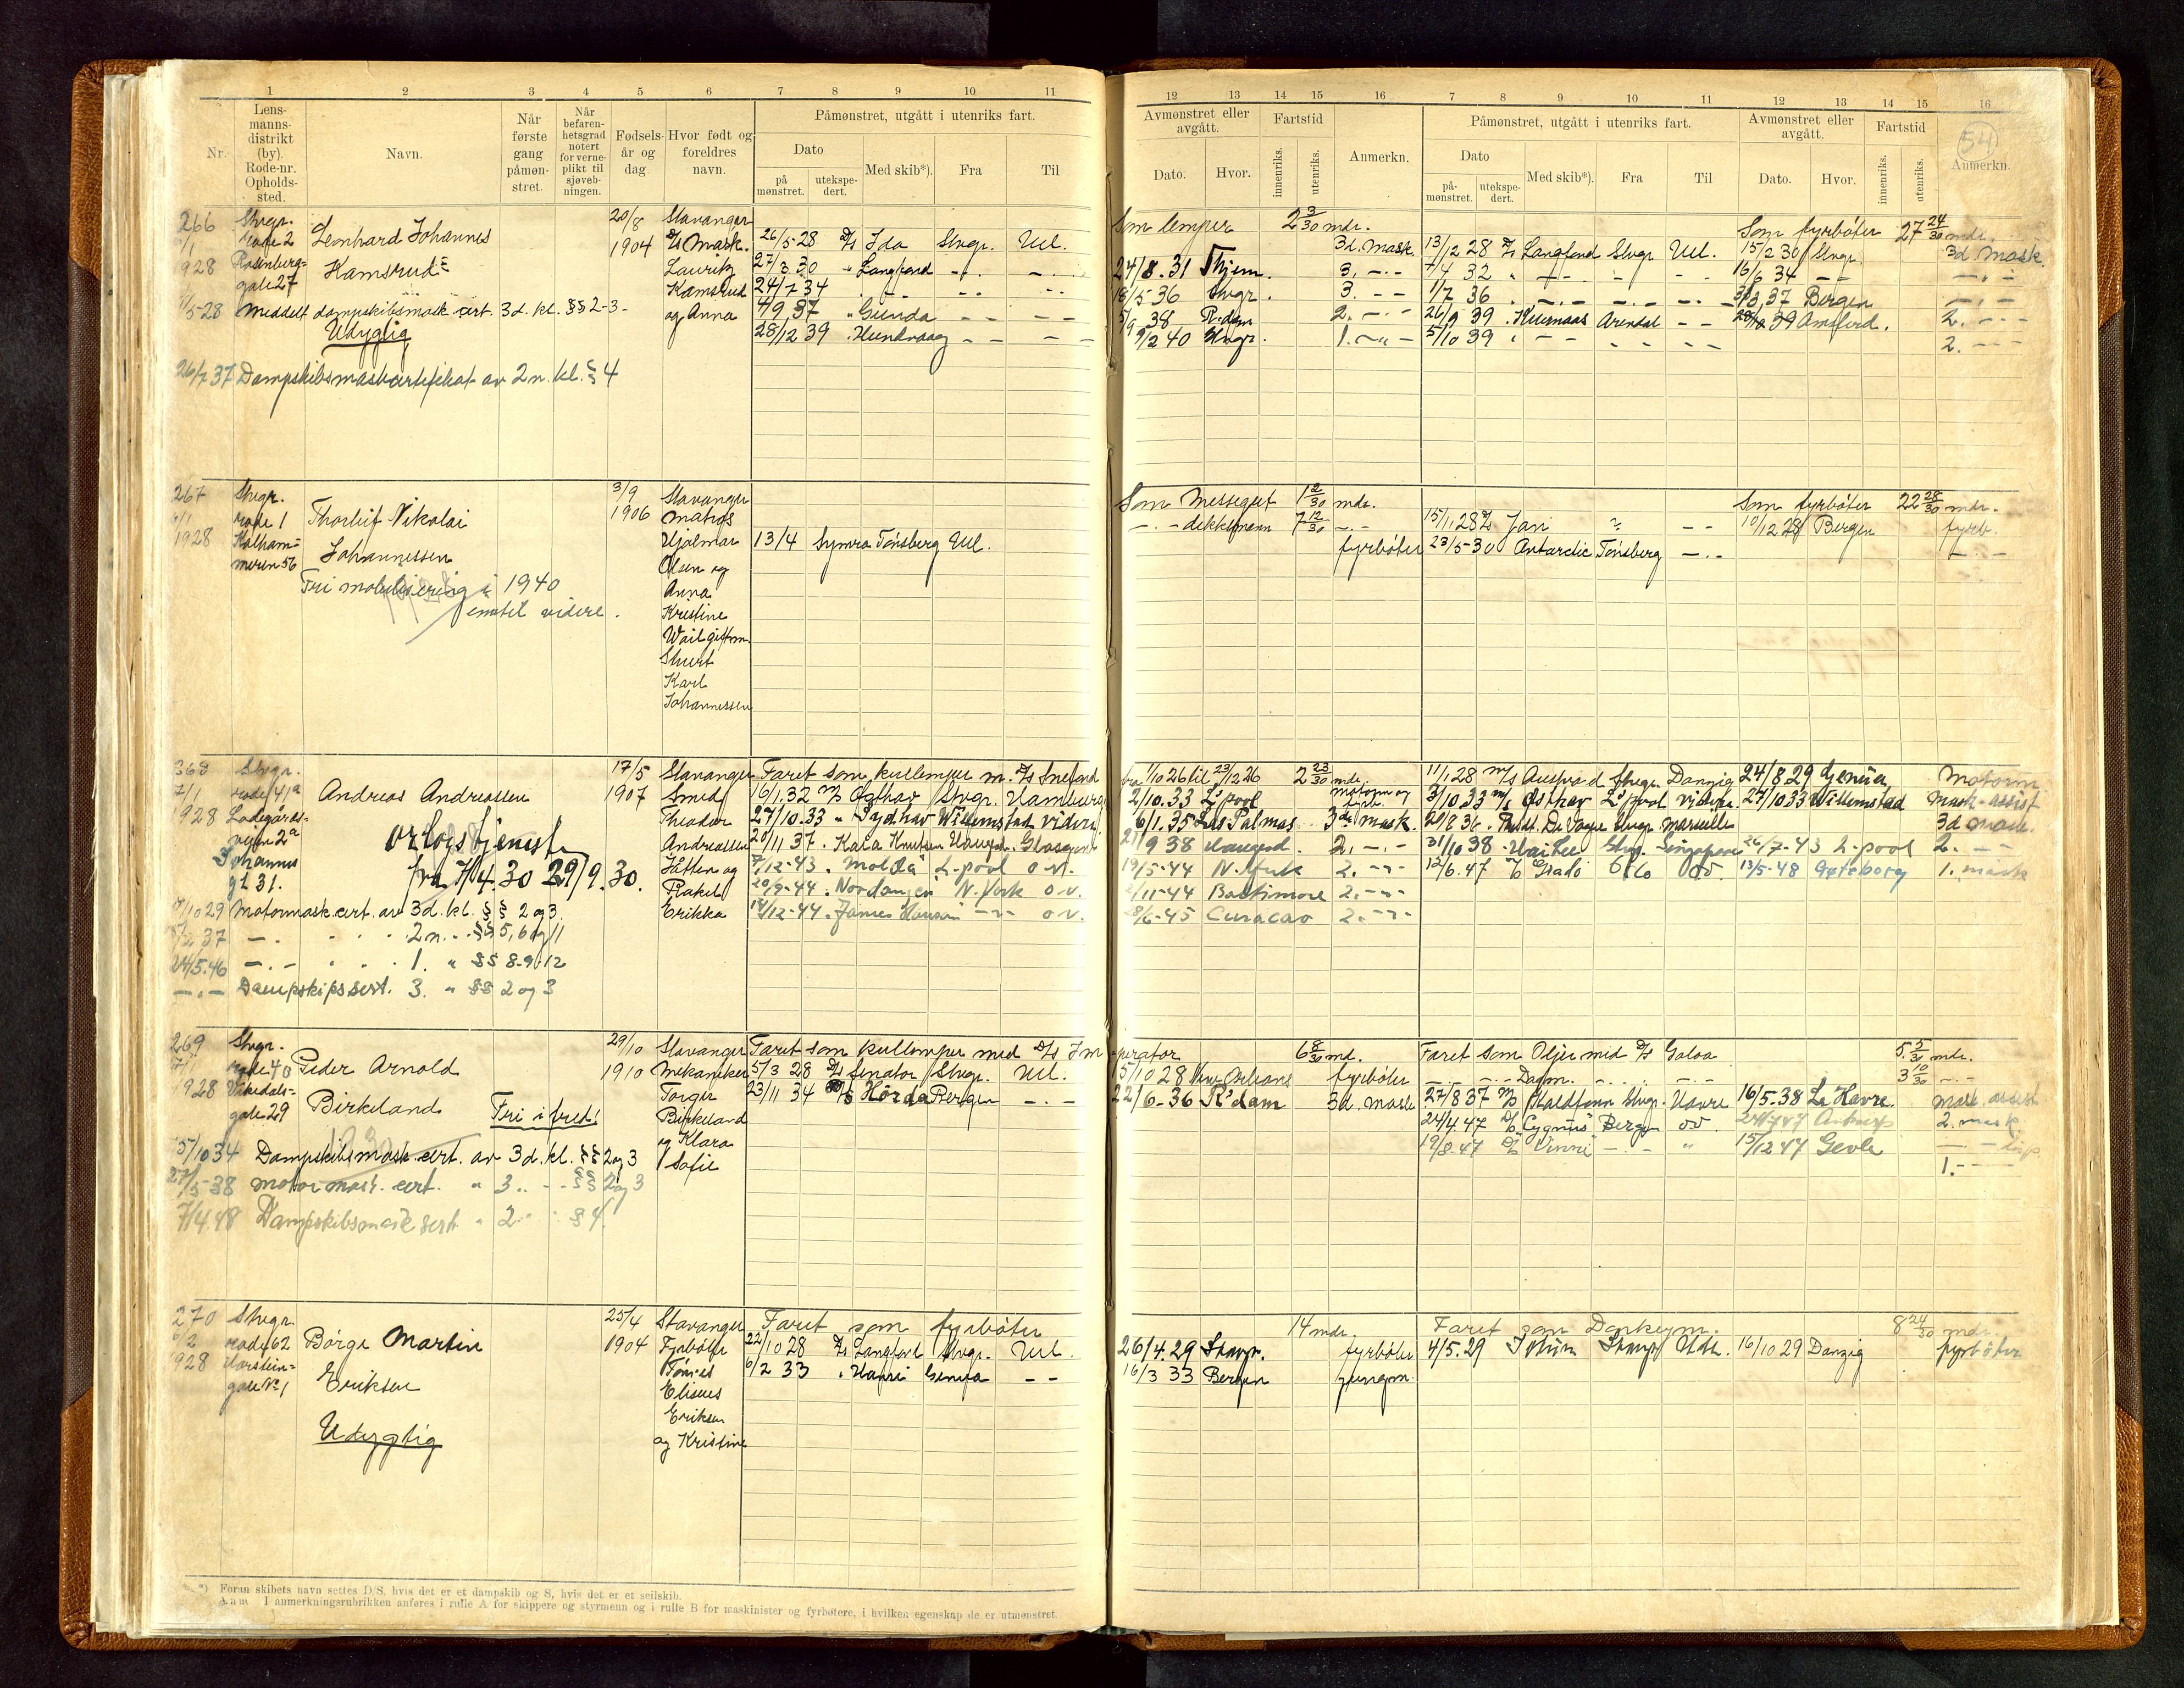 1 2 3 4 5 6 7 8 9 10 11
Nr.
Lens-
manns-
distrikt
(by).
Rode-nr.
Opholds-
sted.
Navn.
Når
første
gang
påmøn-
stret.
Når
befaren-
hetsgrad
notert
for verne-
plikt til
sjøveb-
ningen.
Fødsels-
år og
dag
Hvor født og
foreldres
navn.
Påmønstret, utgått i utenriks fart.
Dato
på
mønstret.
utekspe-
dert.
Med skib*).
Fra
Til
12 13 14 15 16 7 8 9 10 11 12 13 14 15 16
Avmønstret eller
avgått.
Dato.
Hvor.
Fartstid
innenriks.
utenriks.
Anmerkn.
Påmønstret, utgått i utenriks fart.
Dato
på-
mønstret.
utekspe-
dert.
Med skib*).
Fra
Til
Avmønstret eller
avgått.
Dato.
Hvor.
Fartstid
innenriks.
utenriks.
54
Anmerkn.
266 Stvgr. 20/8 Stavanger
rode 2 Leonhard Johannes 1904 D/s Mask. 26/5-28 D/s Ida Stvgr. Utl.
1928 Rosenberg= Lauritz 27/3 30 " Langfond - . -
gate 27 Kamsrud= Kamsrud 24/7 34
11/5-28 Meddelt dampskibsmask cert. 3d. kl. §§ 2-3- og Anna 4/9 37 " Gunda - -
Udygtig 28/12 39 . Hundvaag - -
26/7 37 Dampskibsmaskcertifikat av 2n. kl. § 4
Som lemper 2 3/30 mdr. Som fyrbøter 27 24/30 mdr.
3d. mask. 13/2 28 D/s Langfond Stvgr Utl. 15/2 30 Stvgr. 3d mask.
24/8. 31 Thjem. 3. -.- 7/4 32 16/6 34
18/5-36 Stvgr. 3. - - 1/7 36 37 Bergen
5/9 38 R.dam 2. -.- 26/9 39 Arendal - - 39 2. - -
9/2 40 Stvgr. 1. - 5/10 39 2. - -
267 Stvgr. 3/9 Stavanger
rode 1 Thorleif Nikolai 1906 matros
1928 Kalham= Hjalmar 13/4 Symra Tønsberg Utl.
meren 56 Johannessen Olsen og
Fri mobilisering i 1940 Anna
inntil videre. Kristine
Wail gift m.
Stuert
Karl
Johannessen
Som Messegut 1 2/30 mdr. Som fyrbøter 22 28/30 mdr.
-.- dekksmann 7 12/30 -.- 15/1.28 D/s Jari - - 10/12 28 Bergen fyrb.
fyrbøter 23/5-30 Antarctic Tønsberg -.- -.-
368 Stvgr. 17/5 Stavanger Faret som kullemper m. D/s Snefond
7/1 rode 41a Andreas Andreassen 1907 Smed 16/1.32 M/s Østhav Stvgr. Hamburg
1928 Ladegårds- Theodor 27/10.33 " Sydhav Willemstad videre
veien 2a orlogstjeneste Andreassen 20/11 37 . Kaia Knudsen Haugsd. Glasgow
Johannes Hatten og 7/12-43 . Molda L.pool o.v.
gt 31. fra 7/4.30 29/9.30. Rakel 20/9-44 . Nordanger N.York o.v.
17/10 29 Motormask.cert. av 3d. kl. §§ 2 og 3. Erikka 14/12-44 . James Hansen -"- o.v.
37 -.- 2n. . §§ 5, 6 og 11
24/5.46 -.- . . 1. " §§ 8-9-12
-.- Dampskipssert. 3. " §§ 2 og 3
fra 1/10 26 til 23/12 26 2 23/30 mdr. 11/1.28 M/s Stvgr. Danzig 24/8 29 Genua Motorm.
2/10. 33 L.pool motorm og fyrb. 3/10.33 M/s Østhav L.pool videre 27/10 33 Willemstad Mask-assist
6/1.35 Las Palmas 3de mask. 20/8 36 . Thode Fagelund Stvgr. Marseille 3d mask.
21/9 38 Haugesd. 2. -.- 31/10 38 . Hai Lee Stvg. Singapore 26/7-43 L.pool 2. - -
19/5-44 N.York 2. -"- 12/6.47 Oslo o.v. 13/5-48 Gøteborg 1. mask
2/11-44 Baltimore 2. -"-
28/6-45 Curacao 2. -"-
269 Stvgr. 29/10 Stavanger Faret som kullemper med D/s Im
7/1 rode 40 Peder Arnold 1910 Mekaniker 5/3 28 D/s Senator Stvgr. Utl.
1928 Vikedals- Torger 23/11 34 D/s Hørda Bergen -.-
gate 29 Birkeland Fri i fred! Birkeland
og Klara
5/10 34 Dampskibsmask.cert. av 3d. kl. §§ 2 og 3 Sofie
27/5-38 motormask. cert. " 3. . . §§ 2 og 3
7/4.48 Dampskibsmask sert. " 2. . § 4
perator 6 8/30 md. Faret som Oljer med D/s Goloa 5. 5/30 mdr.
15/10 28 New Orleans fyrbøter -.- -.- Dagm. -.- 3 10/30 -.-
22/6-36 R'dam 3d. mask 27/8 37 M/s Kaldfonn Stvgr. Havre 16/5.38 Le Havre Mask. assist
24/4.47 D/s Cygnus Bergen o.v. 24/7 47 Antwerp 2. mask
19/8.47 D/s Vinni -.- " 15/12 47 Gevle
1. - -
270 Stvgr. 25/4 Stavanger Faret som fyrbøter
6/2 rode 62 Børge Martin 1904 Fyrbøter 22/10 28 D/s Langfond Stvgr. Utl.
1928 Harstein= Tønnes 6/2 33 . Genua - -
gate No 1 Eriksen Elisæus
Eriksen
Udygtig og Kristine
14 mdr. Faret som Donkeym. 8 24/30 mdr.
26/4.29 Stavgr. fyrbøter 4/5.29 Idun Stavgr Utl. 16/10 29 Danzig fyrbøter
16/3 33 Bergen jungm.
*) Foran skibets navn settes D/S, hvis det er et dampskib og S, hvis det er et seilskib.
Anm. I anmerkningsrubrikken anføres i rulle A for skippere og styrmenn og i rulle B for maskinister og fyrbøtere, i hvilken egenskap de er utmønstret.